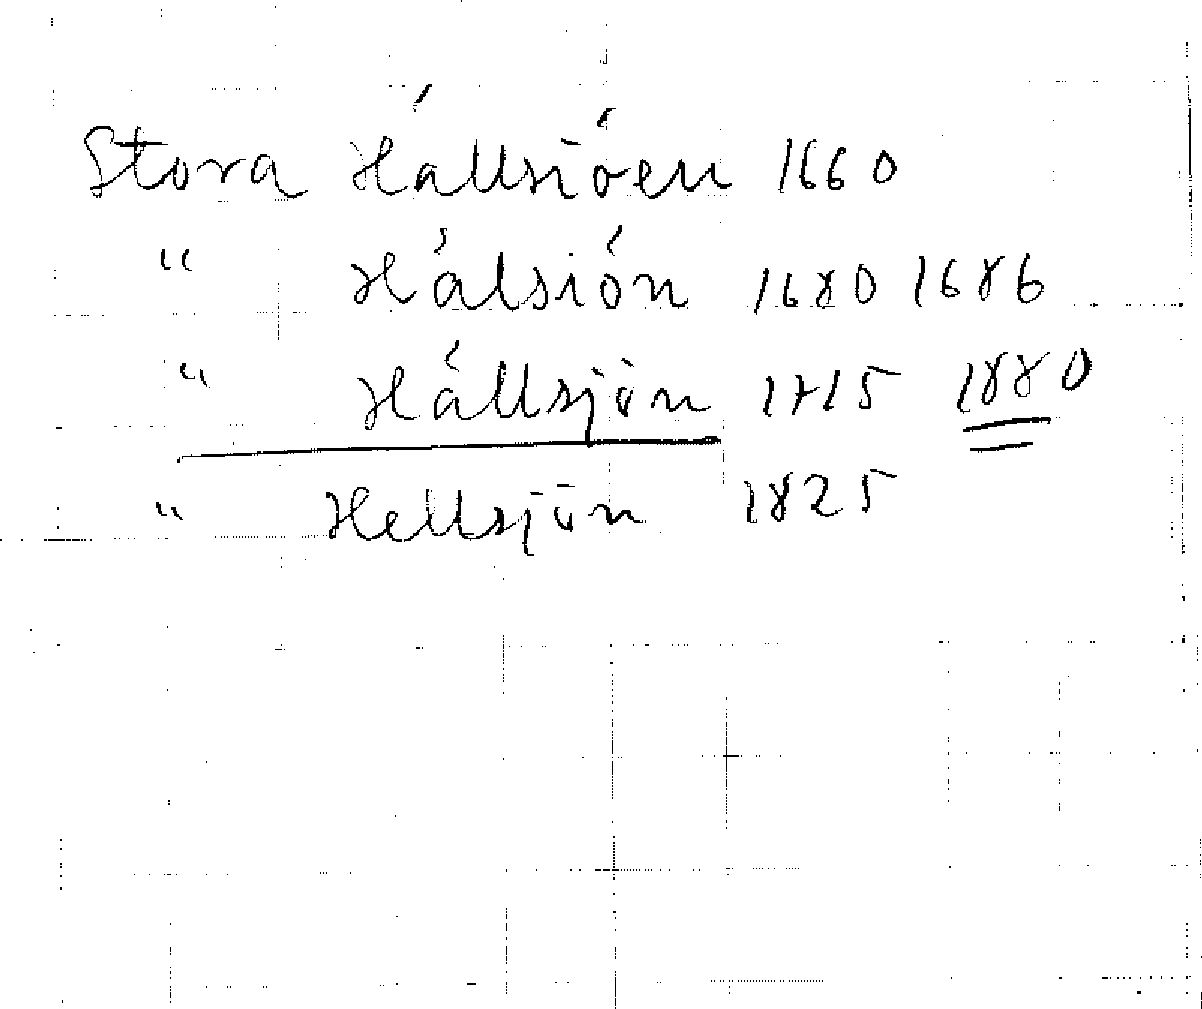 Stora Hállsióen 1660
" Hálsión 1680 1686
" Hállsjön 1715 1880
" Hellsjön 1825